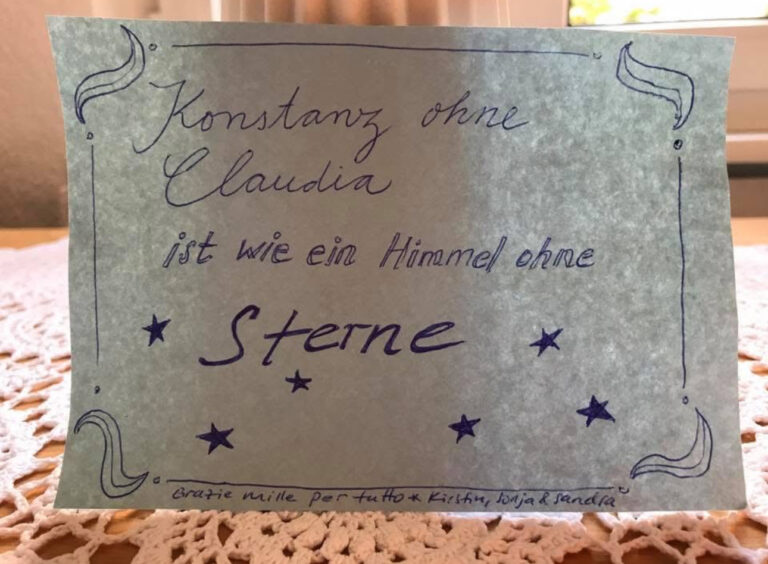 Konstanz ohne
Claudia
ist wie ein Himmel ohne
Sterne
Grazie mille per tutto * Kirstin, Sonja & Sandra